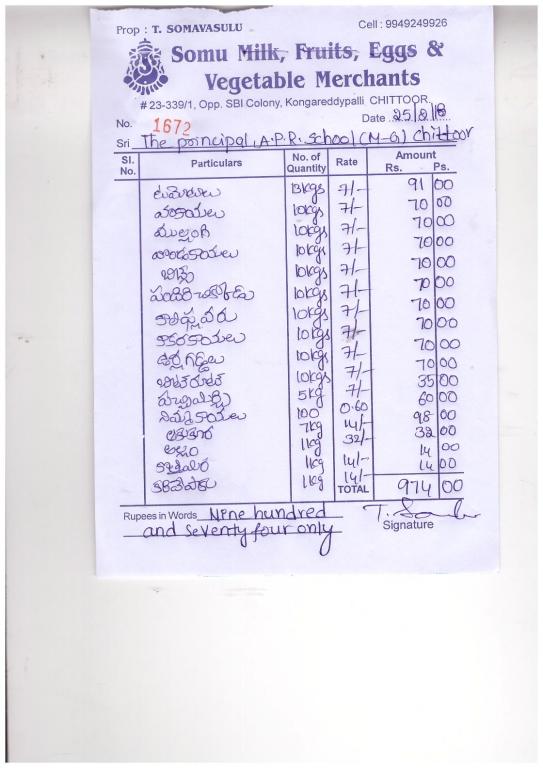 Prop : T. SOMAVASULU Cell : 9949249926
Somu Milk, Fruits, Eggs &
Vegetable Merchants
# 23-339/1, Opp. SBI Colony, Kongareddypalli CHITTOOR.
No. 1672 Date 25/8/18
Sri The principal, A.P.R. School (M-G) Chittoor
Sl. No. Particulars No. of Quantity Rate Amount Rs. Ps.
టమేటాలు 13kgs 7/- 91 00
వంకాయలు 10kgs 7/- 70 00
ముల్లంగి 10kgs 7/- 70 00
బెండకాయలు 10kgs 7/- 70 00
10kgs 7/- 70 00
10kgs 7/- 70 00
కాలిఫ్లవరు 10kgs 7/- 70 00
కాకరకాయలు 10kgs 7/- 70 00
ఉర్లగడ్డలు 10kgs 7/- 70 00
బీట్‌రూట్ 10kgs 7/- 70 00
పచ్చిమిర్చి 5kg 7/- 35 00
నిమ్మకాయలు 100 0.60 60 00
ఆకుకూర 7kg 14/- 98 00
అల్లం 1kg 32/- 32 00
కొత్తిమీర 1kg 14/- 14 00
కరివేపాకు 1kg 14/- 14 00
TOTAL 974 00
Rupees in Words Nine hundred
and seventy four only
Signature